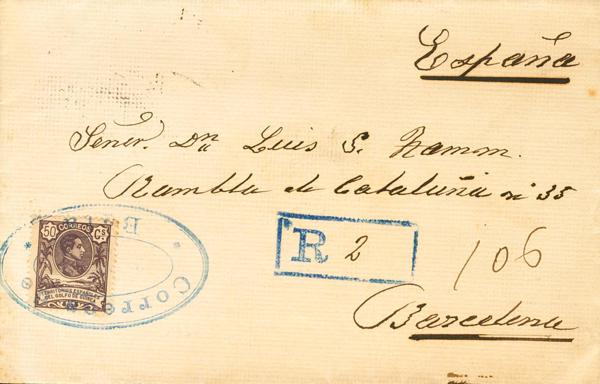 España
Señor. Dn Luis S. Ramon.
Rambla de Cataluña nº 35
50 CORREOS Cs
TERRITORIOS ESPAÑOLES
DEL GOLFO DE GUINEA
* Correos *
Bata
R 2
106
Barcelona